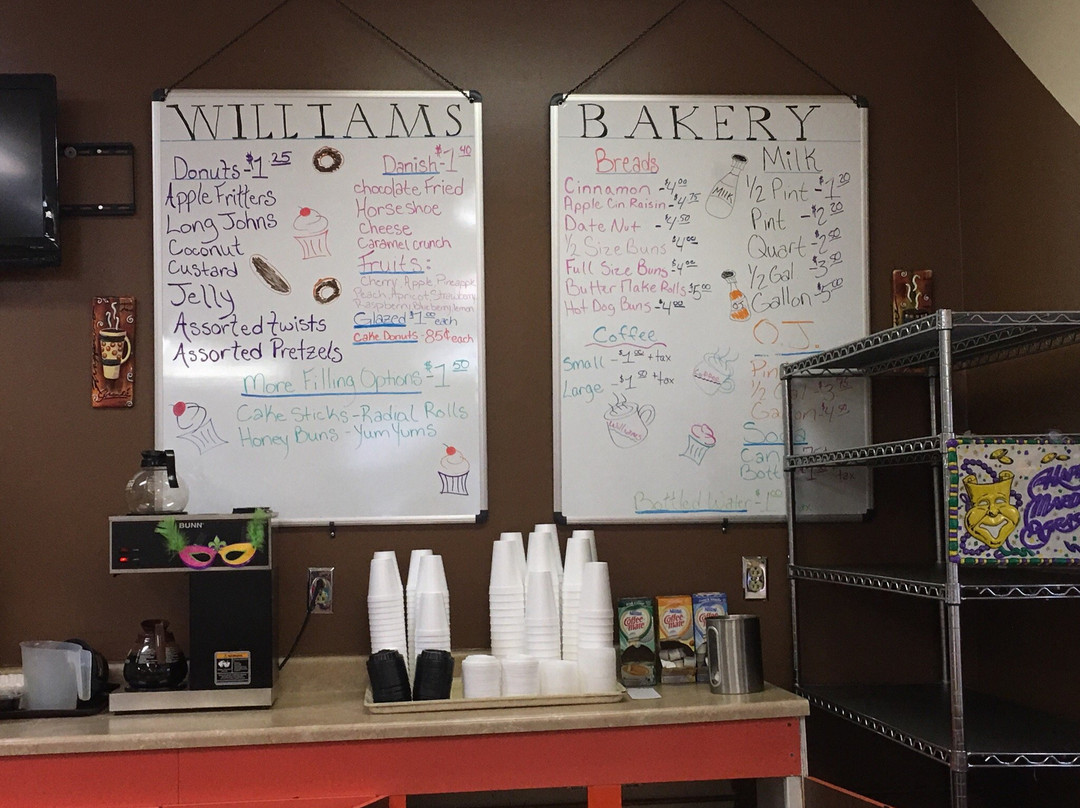 WILLIAMS
Donuts - $1.25
Apple Fritters
Long Johns
Coconut
Custard
Jelly
Assorted twists
Assorted Pretzels
Danish - $1.40
chocolate Fried
Horseshoe
cheese
Caramel crunch
Fruits:
Cherry, Apple, Pineapple
Peach, Apricot, Strawberry
Raspberry, Blueberry, lemon
Glazed $1.00 each
Cake Donuts - 85¢ each
More Filling Options - $1.50
Cake Sticks - Radial Rolls
Honey Buns - Yum Yums
BAKERY
Breads
Cinnamon - $4.00
Apple Cin Raisin - $4.75
Date Nut - $4.50
1/2 Size Buns $4.00
Full Size Buns $4.00
Butter Make Rolls $5.00
Hot Dog Buns - $4.00
Coffee
Small - $1.00 + tax
Large - $1.50 + tax
Coffee
Williams
MILK
Milk
1/2 Pint - $1.20
Pint - $2.20
Quart - $2.50
1/2 Gal - $3.50
Gallon - $5.00
OJ
O.J.
Soda
Can
Bottled Water - $1.00
BUNN
WARNING
Nestle
Coffee mate
Nestle
Coffee mate
Nestle
Coffee mate
Happy
Mardi
Gras